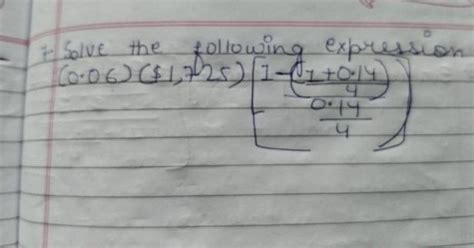 7. Solve the following expression
(0.06)($1,725)[1-(1+0.14/4)
0.14
4]